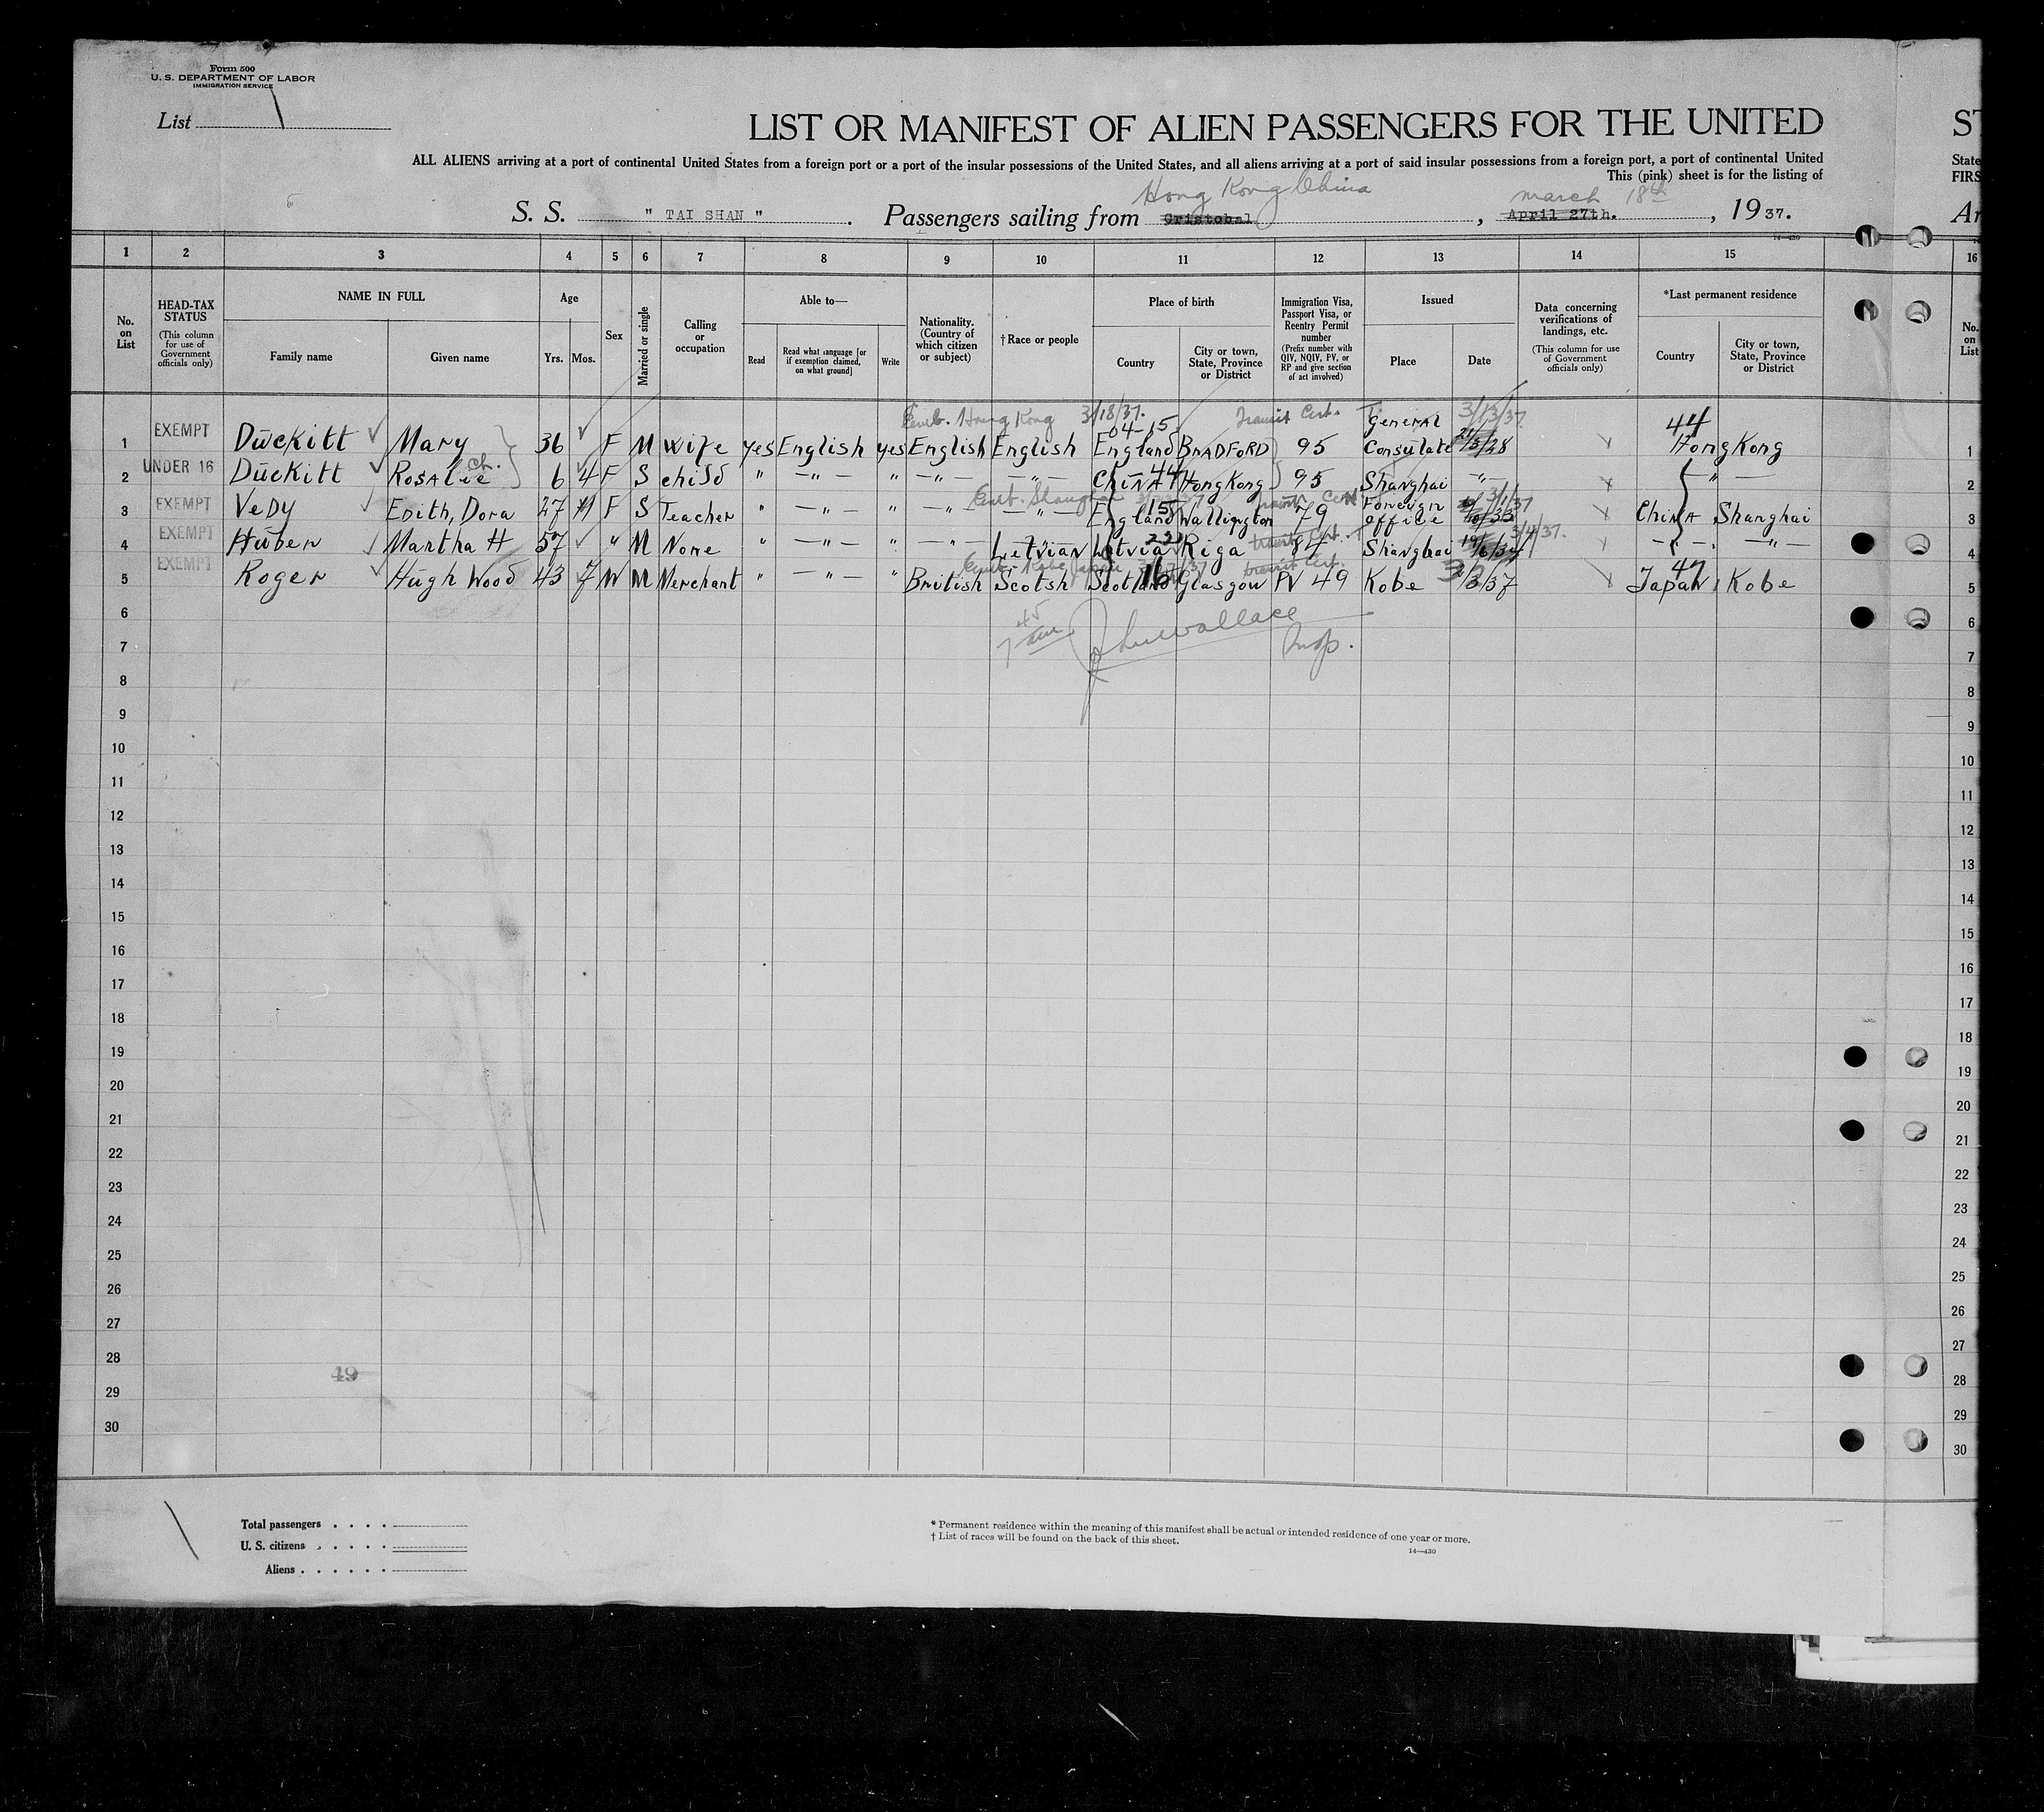 Form 500
U. S. DEPARTMENT OF LABOR
IMMIGRATION SERVICE
List 1
LIST OR MANIFEST OF ALIEN PASSENGERS FOR THE UNITED
ST
ALL ALIENS arriving at a port of continental United States from a foreign port or a port of the insular possessions of the United States, and all aliens arriving at a port of said insular possessions from a foreign port, a port of continental United
State
This (pink) sheet is for the listing of
FIRS
Hong Kong China march 18th
S. S. " TAI SHAN ". Passengers sailing from Cristobal, April 27th., 1937.
Ar
14-430
1 2 3 4 5 6 7 8 9 10 11 12 13 14 15 16
No. on List
HEAD-TAX STATUS (This column for use of Government officials only)
NAME IN FULL Family name Given name
Age Yrs. Mos.
Sex
Married or single
Calling or occupation
Able to— Read Read what language [or if exemption claimed, on what ground] Write
Nationality. (Country of which citizen or subject)
†Race or people
Place of birth Country City or town, State, Province or District
Immigration Visa, Passport Visa, or Reentry Permit number (Prefix number with QIV, NQIV, PV, or RP and give section of act involved)
Issued Place Date
Data concerning verifications of landings, etc. (This column for use of Government officials only)
*Last permanent residence Country City or town, State, Province or District
No. on List
Emb. Hong Kong 3/18/37. Transit Cert. General 3/13/37
04-15 44
1 EXEMPT Duckitt Mary 36 F M Wife yes English yes English English England BRADFORD 95 Consulate Hong Kong 1
2 UNDER 16 Duckitt Rosalie ch. 6 4 F S child " —"— " —"— —"— China 44 Hong Kong 95 Shanghai —"— —"— 2
Emb. Shanghai Transit Cert. Foreign 3/1/37
3 EXEMPT Vedy Edith, Dora 27 11 F S Teacher " —"— " —"— —"— England 15 Wallington 79 office China Shanghai 3
4 EXEMPT Huber Martha H 57 " M None " —"— " —"— Letvian Letvia Riga transit Cert. 84 Shanghai 3/4/37. —"— —"— 4
Emb. Kobe Japan transit Cert. 47
5 EXEMPT Roger Hugh Wood 43 7 M M Merchant " —"— " British Scotsh Scotland 16 Glasgow PV 49 Kobe /3/37 Japan Kobe 5
6 6
7 45 am Wallace Insp. 7
8 8
9 9
10 10
11 11
12 12
13 13
14 14
15 15
16 16
17 17
18 18
19 19
20 20
21 21
22 22
23 23
24 24
25 25
26 26
27 27
28 49 28
29 29
30 30
Total passengers . . . .
U. S. citizens . . . . .
Aliens . . . . . .
* Permanent residence within the meaning of this manifest shall be actual or intended residence of one year or more.
† List of races will be found on the back of this sheet.
14—430